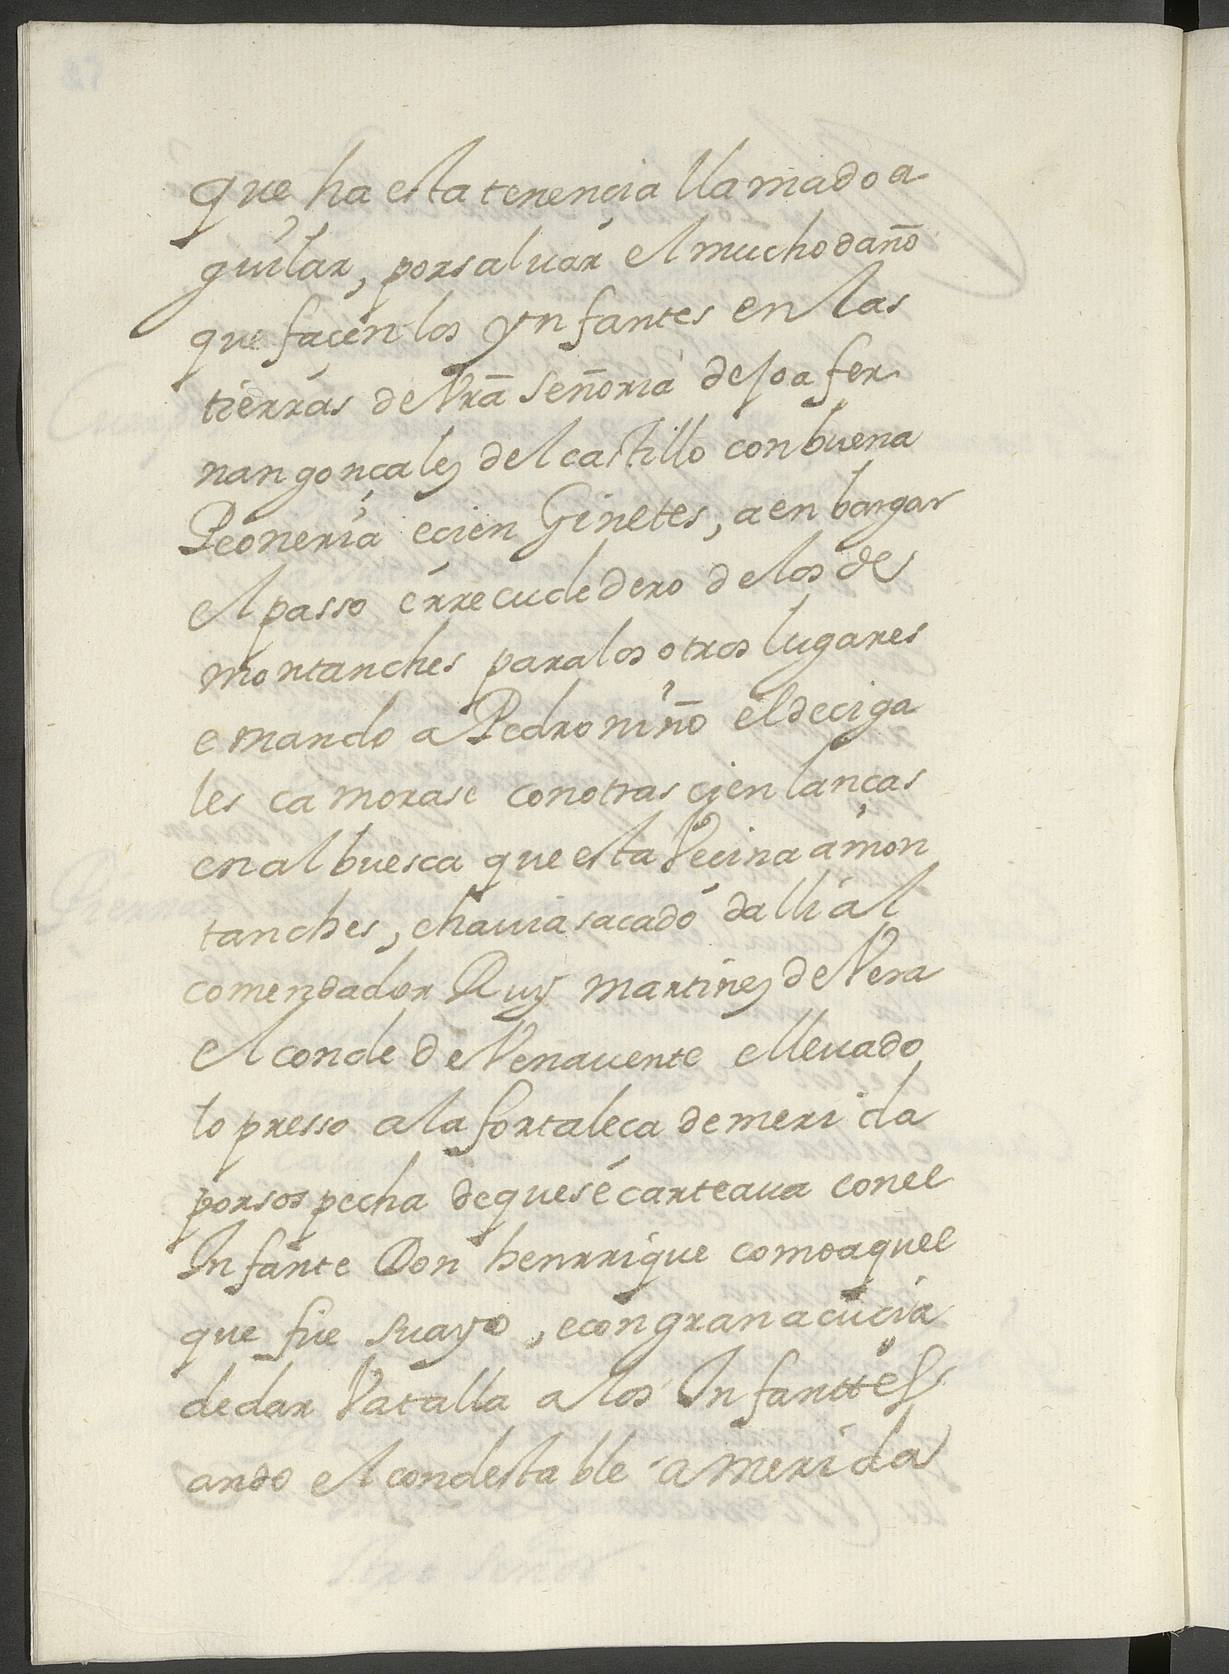 que ha esta tenençia llamado a
guilar, por saluar el mucho daño
que façen los ynfantes en las
tierras de Vrã Señoria dejo a fer
nan gonçalez del castillo con buena
Peoneria e cien Ginetes, a enbargar
el passo érrecudedero de los de
montanches para los otros lugares
e mando a Pedro niño el de ciga
les ca morase con otras cien lanças
en albuesca que esta Vecina a mon
tanches, e hauia sacado dalli al
comendador Ruy martinez de Vera
el conde de Venauente e lleuado
lo presso a la fortaleça de merida
por sospecha de que sé carteaua con el
Infante Don henrrique como aquel
que fue suayo, e con gran acuçia
de dar Vatalla a los Infanttes
ando el condestable a merida